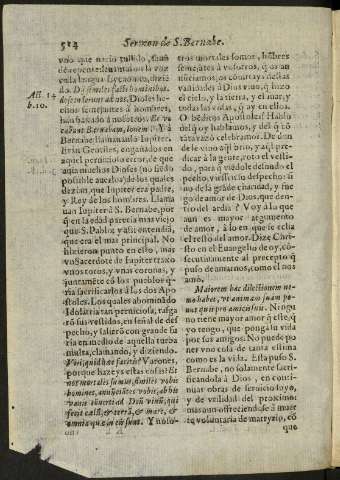 514
Sermon de S. Bernabe.
Act. 14
b. 10.
vno que nacio tullido, sanó
de repente, leuantaron la voz
en la lengua Lycaonica, dizié
do. Dij similes facti hominibus,
descenderunt ad nos. Dioses he-
chos semejantes à hombres,
han baxado à nosotros. Et vo
cabant Barnabam, Iouem. Y à
Bernabe llamauan Iupiter.
Erã Gentiles, engañados en
aquel pernicioso error, de que
auia muchos Dioses (no siédo
possible auerlos) de los quales
dezian, que Iupiter era padre,
y Rey de los hombres. Llama
uan Iupiter à S. Bernabe, por
q̃ en la edad parecia mas viejo
que S. Pablo, y assi entendiã,
que era el mas principal. No
hizieron punto en esto, mas
vn Sacerdote de Iupiter traxo
vnos toros, y vnas coronas, y
juntaméte có los pueblos q̃-
ria sacrificarlos à los dos Apo
stoles. Los quales abominãdo
Idolatria tan perniciosa, rasga
rõ sus vestidos, en señal de des
pecho, y salierõ con grande fu
ria en medio de aquella turba
multa, clamando, y diziendo.
Viri, quid hæc facitis? Varones,
porque hazeys estas cosas? Et
nos mortales sumus, similes vobis
homines, annũciantes vobis, ab his
vanis cõuerti ad Deũ viuũ, qui
fecit cælũ, & terrã, & mare, &
omnia quæ in eis sunt. Y noso-
tros mortales somos, hõbres
semejantes à vosotros, q̃ os an
nunciamos, os cõuirtays destas
vanidades à Dios viuo, q̃ hizo
el cielo, y la tierra, y el mar, y
todas las cosas, q̃ ay en ellos.
O bēditos Apostoles! Hablo
del q̃ oy hablamos, y del q̃ cõ
trataua zelo amoroso. Quē dõ
de le vino aql brio, y assi pre-
dicar à la gente, roto el vesti-
do, para q̃ viēdole desnudo el
pecho, viessen su despecho: si
no de la grãde charidad, y fue
go de amor de Dios, que den-
tro del ardia? Voy à lo que
aun es mayor argumento
de amor, à lo en que se echa
el resto del amor. Dize Chri-
sto en el Euangelio de oy, có-
secutiuamente al precepto q̃
puso de amarnos, como el nos
amò.
Maiorem hac dilectionem ne-
mo habet, vt animam suam po-
nat quis pro amicis suis. Ningu
no tiene mayor amor q̃ este, q̃
yo tengo, que ponga su vida
por sus amigos. No puede po
ner vno cosa de tanta estima
como es la vida. Esta puso S.
Bernabe, no solamente sacri-
ficandola à Dios, en conti-
nuas obras de seruicio suyo,
y de vtilidad del proximo:
mas aun ofreciendose à muer
te voluntaria de martyrio, có
que